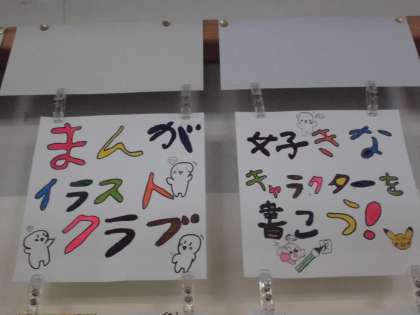 まんが
イラスト
クラブ
好きな
キャラクターを
書こう!